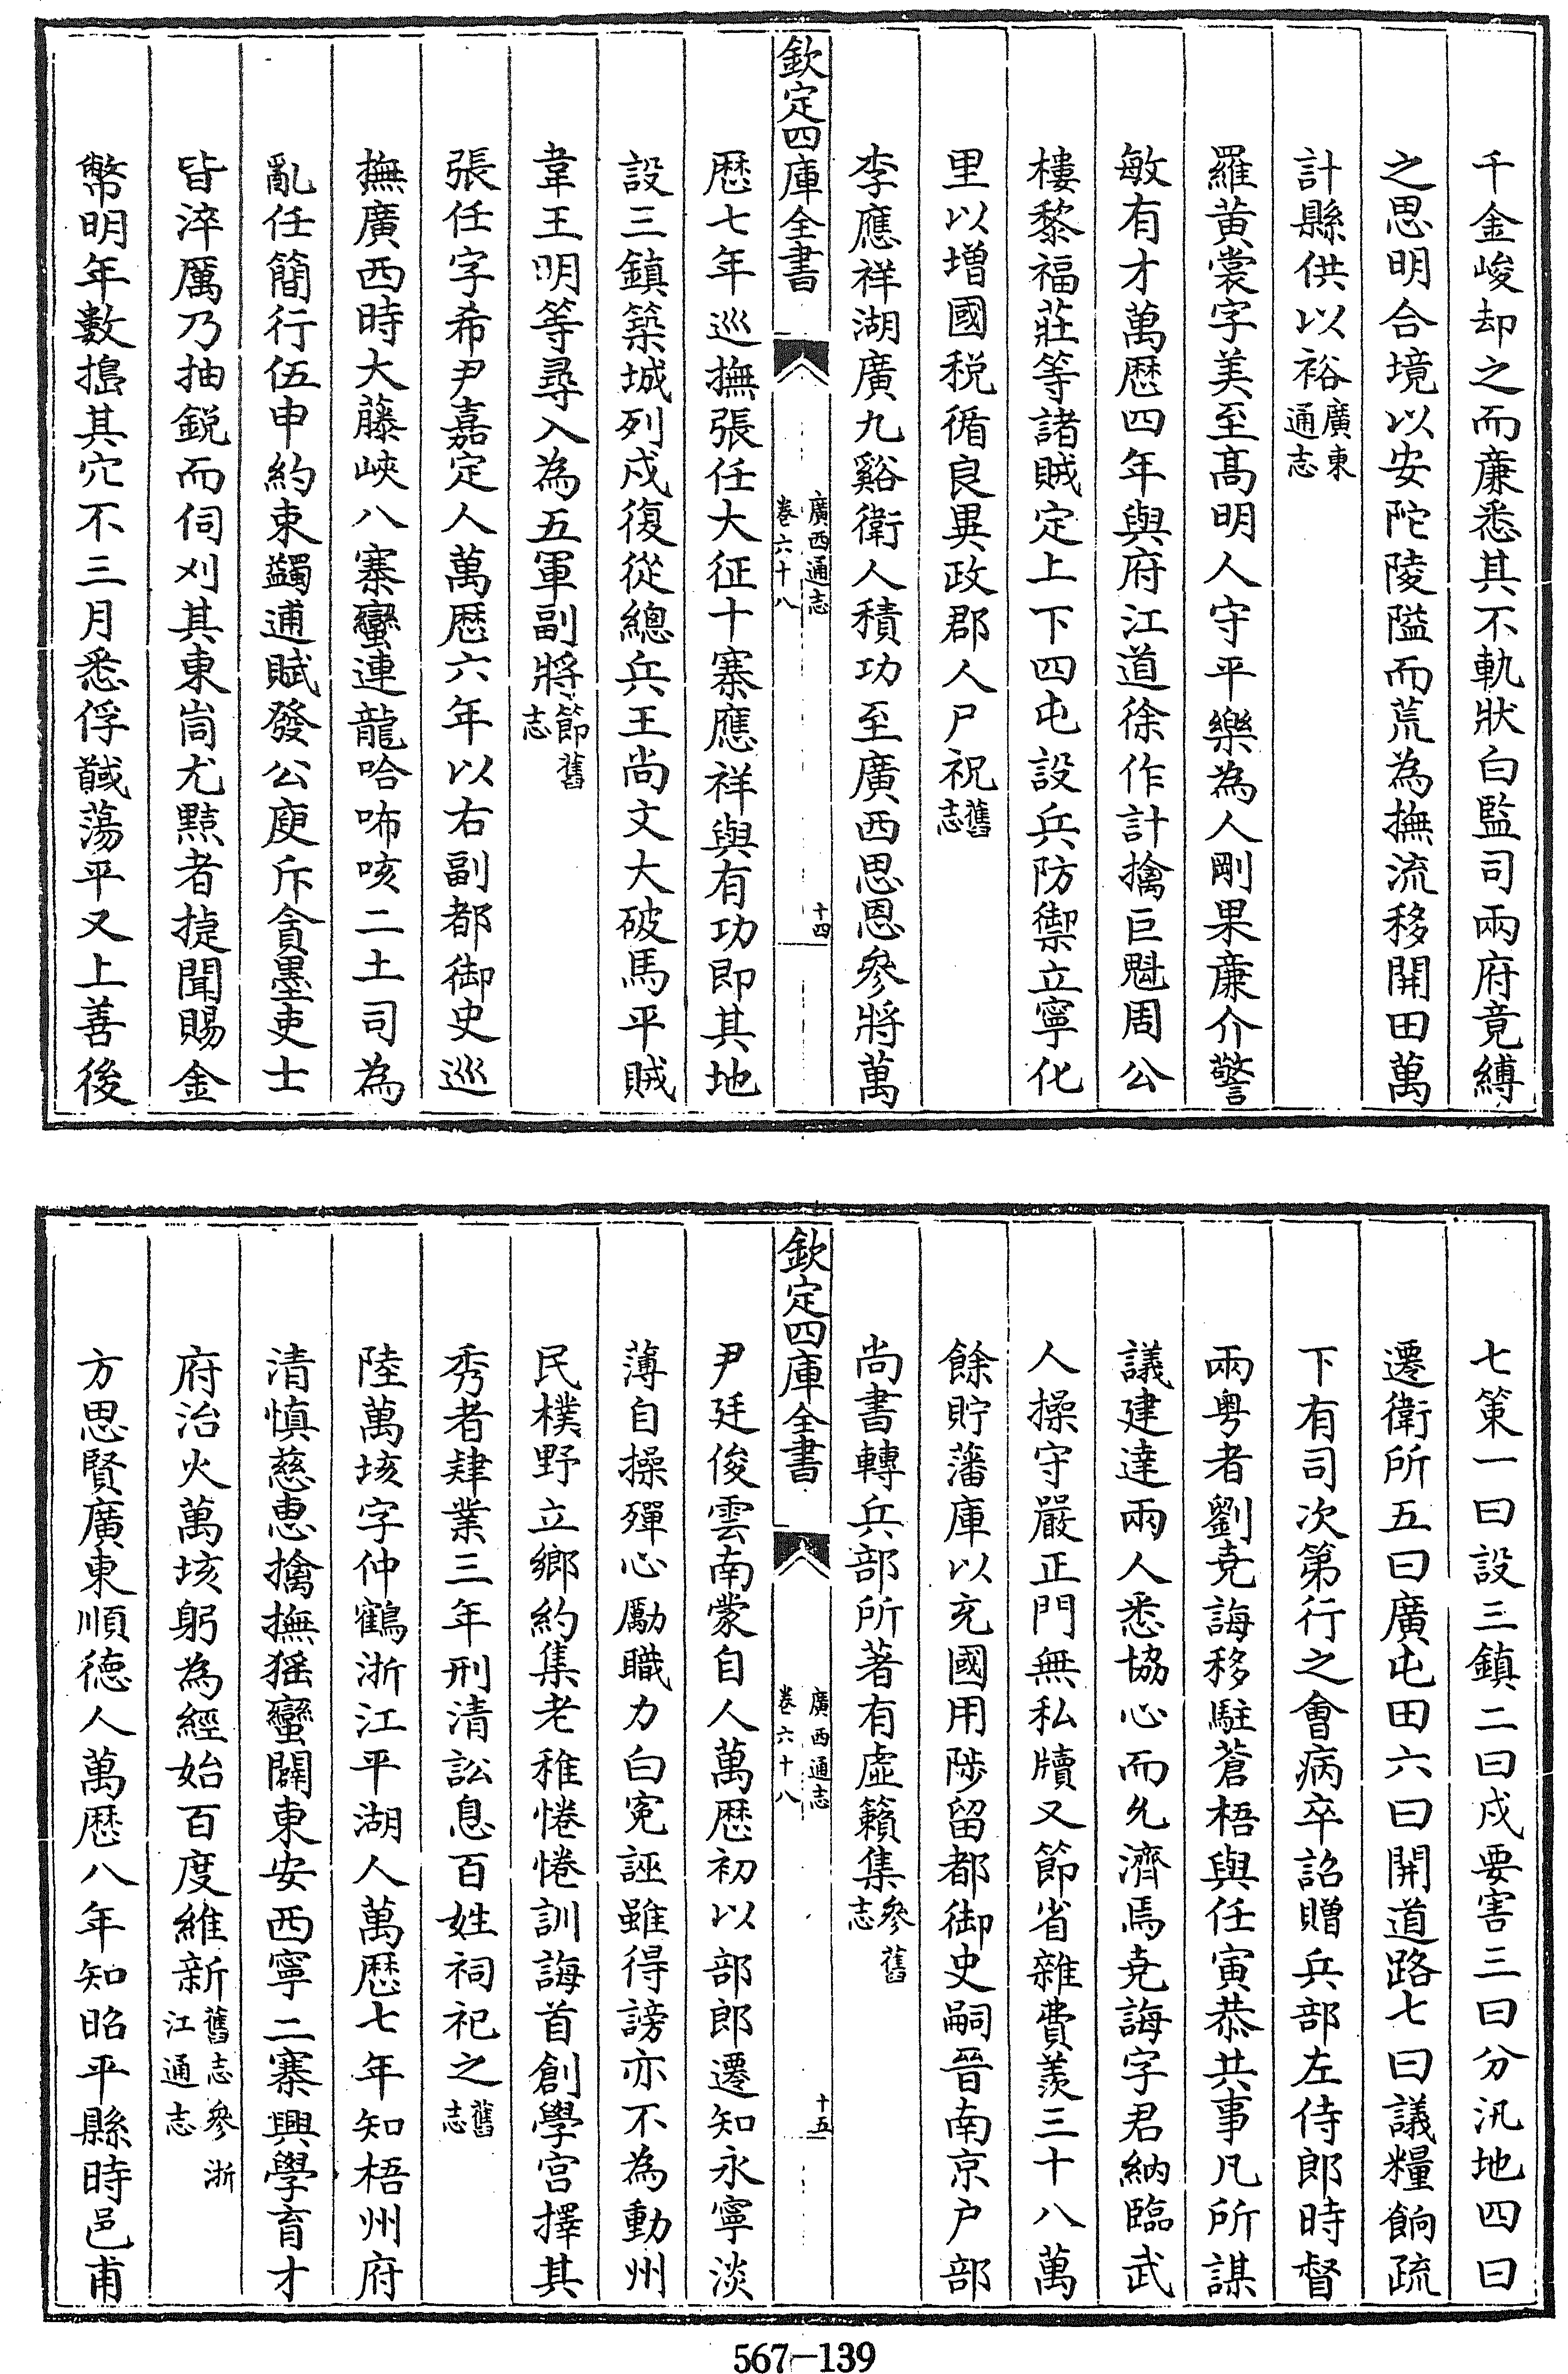 千金峻却之而廉悉其不軌狀白監司兩府竟縛
之思明合境以安陀陵隘而荒為撫流移開田萬
計縣供以裕廣東
通志
羅黃裳字美至高明人守平樂為人剛果廉介警
敏有才萬厯四年與府江道徐作計擒巨魁周公
樓黎福莊等諸賊定上下四屯設兵防禦立寧化
里以増國税循良異政郡人尸祝舊
志
李應祥湖廣九谿衛人積功至廣西思恩參將萬
欽定四庫全書
廣西通志
卷六十八
十四
厯七年巡撫張任大征十寨應祥與有功即其地
設三鎮築城列戍復從總兵王尚文大破馬平賊
韋王明等尋入為五軍副將節舊
志
張任字希尹嘉定人萬厯六年以右副都御史巡
撫廣西時大藤峽八寨蠻連龍哈咘咳二土司為
亂任簡行伍申約束蠲逋賦發公庾斥貪墨吏士
皆淬厲乃抽鋭而伺刈其東崮尤黠者㨗聞賜金
幣明年數搗其穴不三月悉俘馘蕩平又上善後
七策一曰設三鎮二曰戍要害三曰分汛地四曰
遷衛所五曰廣屯田六曰開道路七曰議糧餉疏
下有司次第行之會病卒詔贈兵部左侍郎時督
兩粤者劉堯誨移駐蒼梧與任寅恭共事凡所謀
議建達兩人悉協心而允濟焉堯誨字君納臨武
人操守嚴正門無私牘又節省雜費羨三十八萬
餘貯藩庫以充國用陟留都御史嗣晉南京户部
尚書轉兵部所著有虛籟集參舊
志
欽定四庫全書
廣西通志
卷六十八
十五
尹廷俊雲南蒙自人萬厯初以部郎遷知永寧淡
薄自操殫心勵職力白寃誣雖得謗亦不為動州
民樸野立鄉約集老稚惓惓訓誨首創學宫擇其
秀者肄業三年刑清訟息百姓祠祀之舊
志
陸萬垓字仲鶴浙江平湖人萬厯七年知梧州府
清慎慈惠擒撫猺蠻闢東安西寧二寨興學育才
府治火萬垓躬為經始百度維新舊志參浙
江通志
方思賢廣東順德人萬厯八年知昭平縣時邑甫
567—139